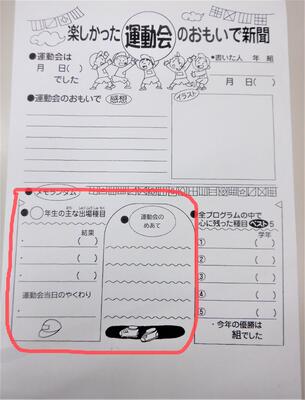 楽しかった運動会のおもいで新聞
●運動会は
月 日( )
でした
●書いた人 年 組
月 日( )
●運動会のおもいで 感想
イラスト
メモランダム
●◯年生の主な出場種目
結果
・ ( )
・ ( )
・ ( )
運動会当日のやくわり
●運動会の
めあて
全プログラムの中で
心に残った種目 ベスト5
学年
① ( )
② ( )
③ ( )
④ ( )
⑤ ( )
・今年の優勝は
組でした